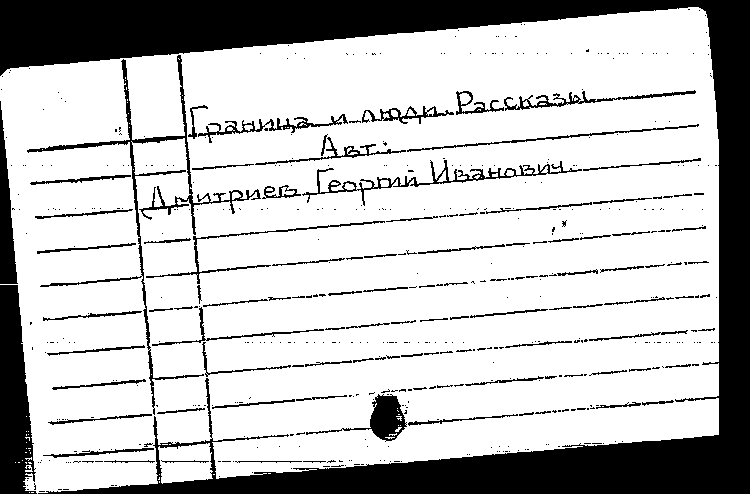 Граница и люди. Рассказы
Авт.:
Дмитриев, Георгий Иванович.